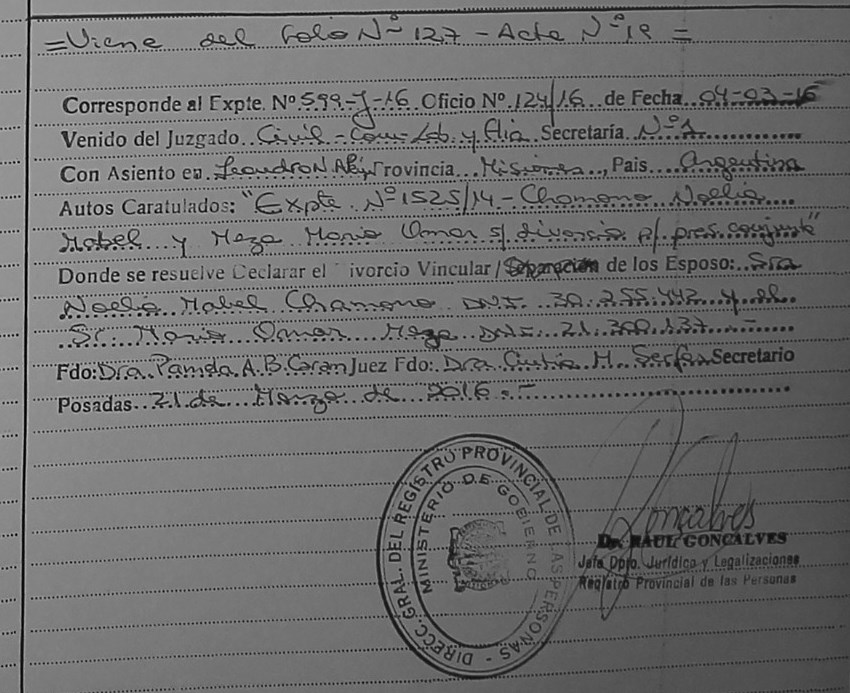 = Viene del Folio Nº 127 - Acta Nº 18 =
Corresponde al Expte. Nº 599-J-16 Oficio Nº 124/16 de Fecha 04-03-16
Venido del Juzgado Civil - Com- Lab. y Flia Secretaría Nº 1
Con Asiento en Leandro N. Alem Provincia Misiones, Pais Argentina
Autos Caratulados: "Expte. Nº 1525/14 - Chamorro Noelia
Mabel y Meza Mario Omar s/ divorcio p/ pres. conjunta"
Donde se resuelve Declarar el ivorcio Vincular / Separación de los Esposo: Sra
Noelia Mabel Chamorro DNI: 30.255.442 y el
Sr. Mario Omar Meza DNI: 21.300.137 -
Fdo: Dra. Pamela A.B. Juez Fdo: Dra. Cintia M. Secretario
Posadas 21 de Marzo de 2016.-
DIRECC. GRAL. DEL REGISTRO PROVINCIAL DE LAS PERSONAS -
MINISTERIO DE GOBIERNO
Goncalves
Dr. RAUL GONCALVES
Jefe Dpto. Jurídico y Legalizaciones
Registro Provincial de las Personas